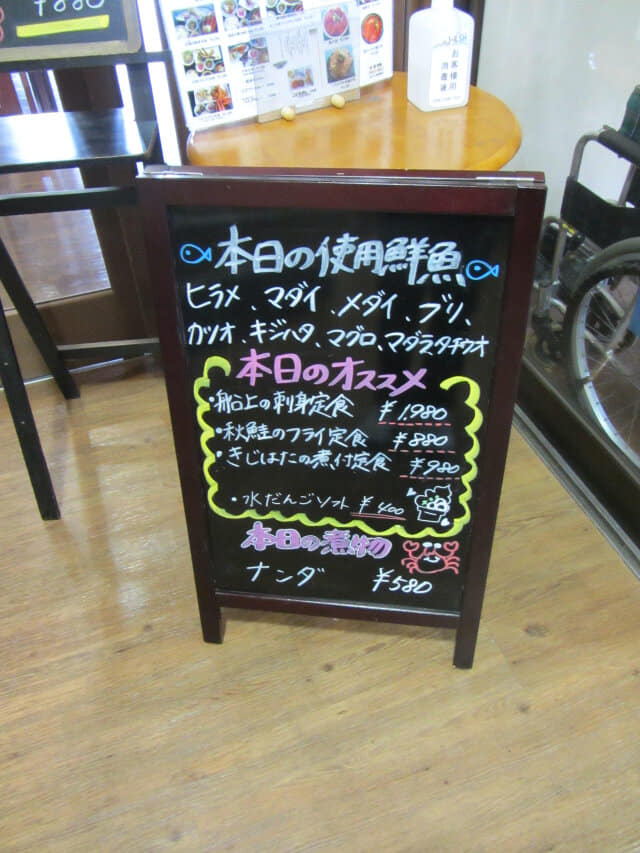 ¥880
お客様用
消毒液
本日の使用鮮魚
ヒラメ、マダイ、メダイ、ブリ、
カツオ、キジハタ、マグロ、マダラ、タチウオ
本日のオススメ
・船上の刺身定食 ¥1,980
・秋鮭のフライ定食 ¥880
・きじはたの煮付定食 ¥980
・水だんごソフト ¥400
本日の煮物
ナンダ ¥580